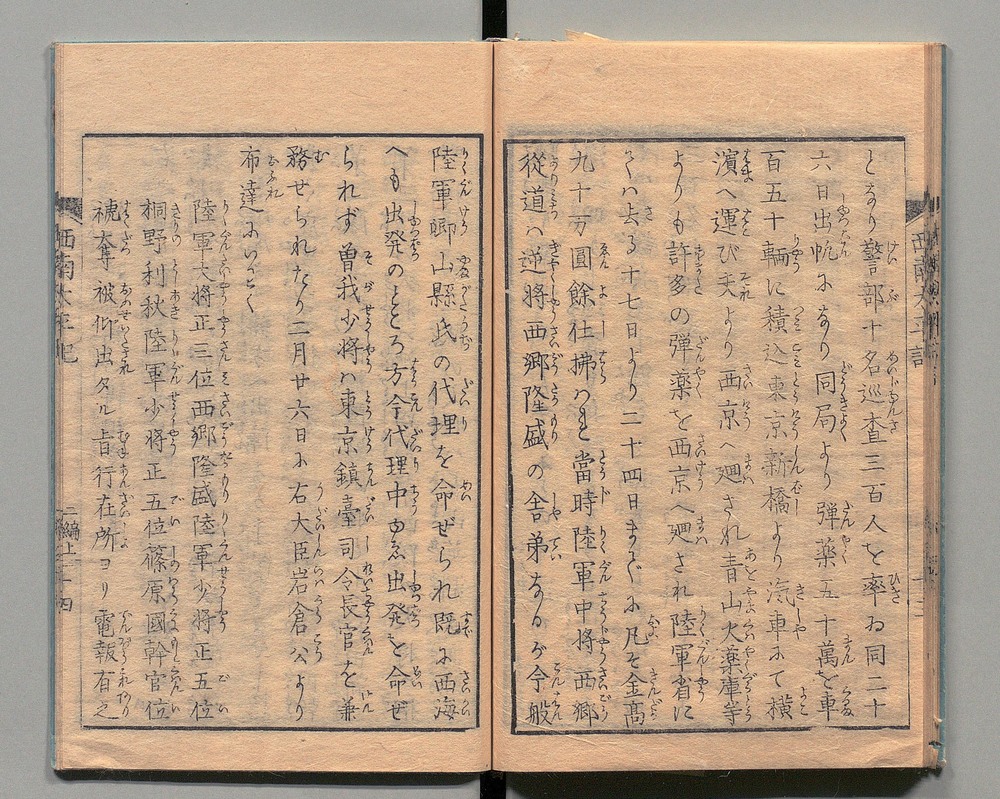 となり警部十名巡査三百人を率ゐ同二十
六日出帆になり同局より弾薬五十萬を車
百五十輌に積込東京新橋より汽車にて横
濱へ運び夫より西京へ廻され青山火薬庫等
よりも許多の弾薬を西京へ廻され陸軍省に
てハ去る十七日より二十四日までに凡そ金高
九十万圓餘仕拂はれ當時陸軍中将西郷
從道ハ逆将西郷隆盛の舎弟なるが今般
陸軍卿山縣氏の代理を命ぜられ既に西海
へも出発のところ方今代理中ゆゑ出発を命ぜ
られず曽我少将ハ東京鎮臺司令長官を兼
務せられたり二月廿六日に右大臣岩倉公より
布達にいはく
陸軍大将正三位西郷隆盛陸軍少将正五位
桐野利秋陸軍少将正五位篠原國幹官位
褫奪被仰出タル旨行在所ヨリ電報有之
西南太平記
二編上
十四